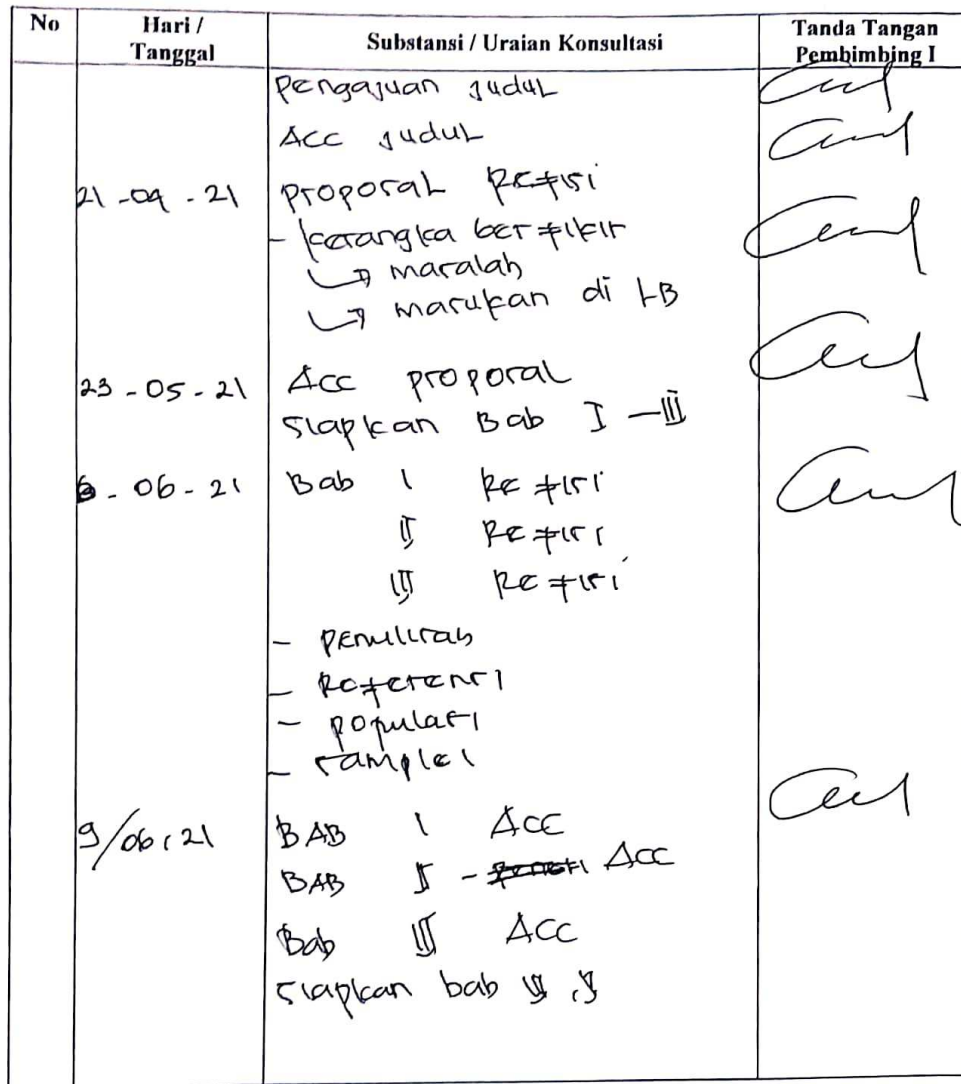 No Hari / Tanggal Substansi / Uraian Konsultasi Tanda Tangan Pembimbing I
Pengajuan judul
Acc judul
21-04-21 Proposal Refisi
- kerangka berfikir
↳ masalah
↳ masukan di LB
23-05-21 Acc proposal
siapkan Bab I - III
6-06-21 Bab I Refisi
II Refisi
III Refisi
- penulisan
- Referensi
- populasi
- sampel
9/06/21 BAB I Acc
BAB II - Acc
Bab III Acc
siapkan bab IV, V